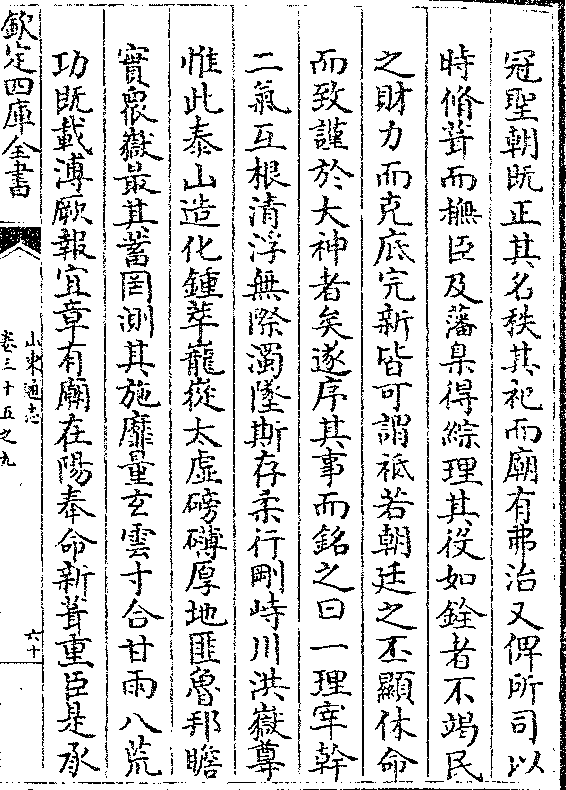 冠聖朝既正其名秩其祀而廟有弗治又俾所司以
時脩葺而撫臣及藩臬得綜理其役如銓者不竭民
之財力而克底完新皆可謂祗若朝廷之丕顯休命
而致謹於大神者矣遂序其事而銘之曰一理宰幹
二氣互根清浮無際濁墜斯存柔行剛峙川洪嶽尊
惟此泰山造化鍾萃巃嵸太虛磅礴厚地匪魯邦瞻
實衆嶽最其蓄罔測其施靡量玄雲寸合甘雨八荒
功既載溥厥報宜章有廟在陽奉命新葺重臣是承
欽定四庫全書
山東通志
卷三十五之九
六十